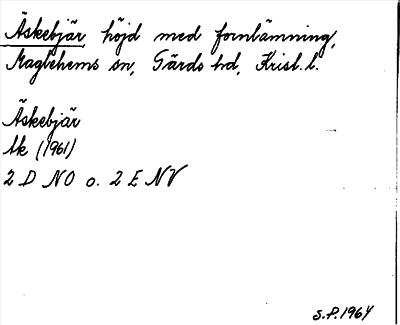 Äskebjär, höjd med fornlämning,
Maglehems sn, Gärds hd, Krist. l.
Äskebjär
Ek (1961)
2 D NO o. 2 E NV
S.P. 1964